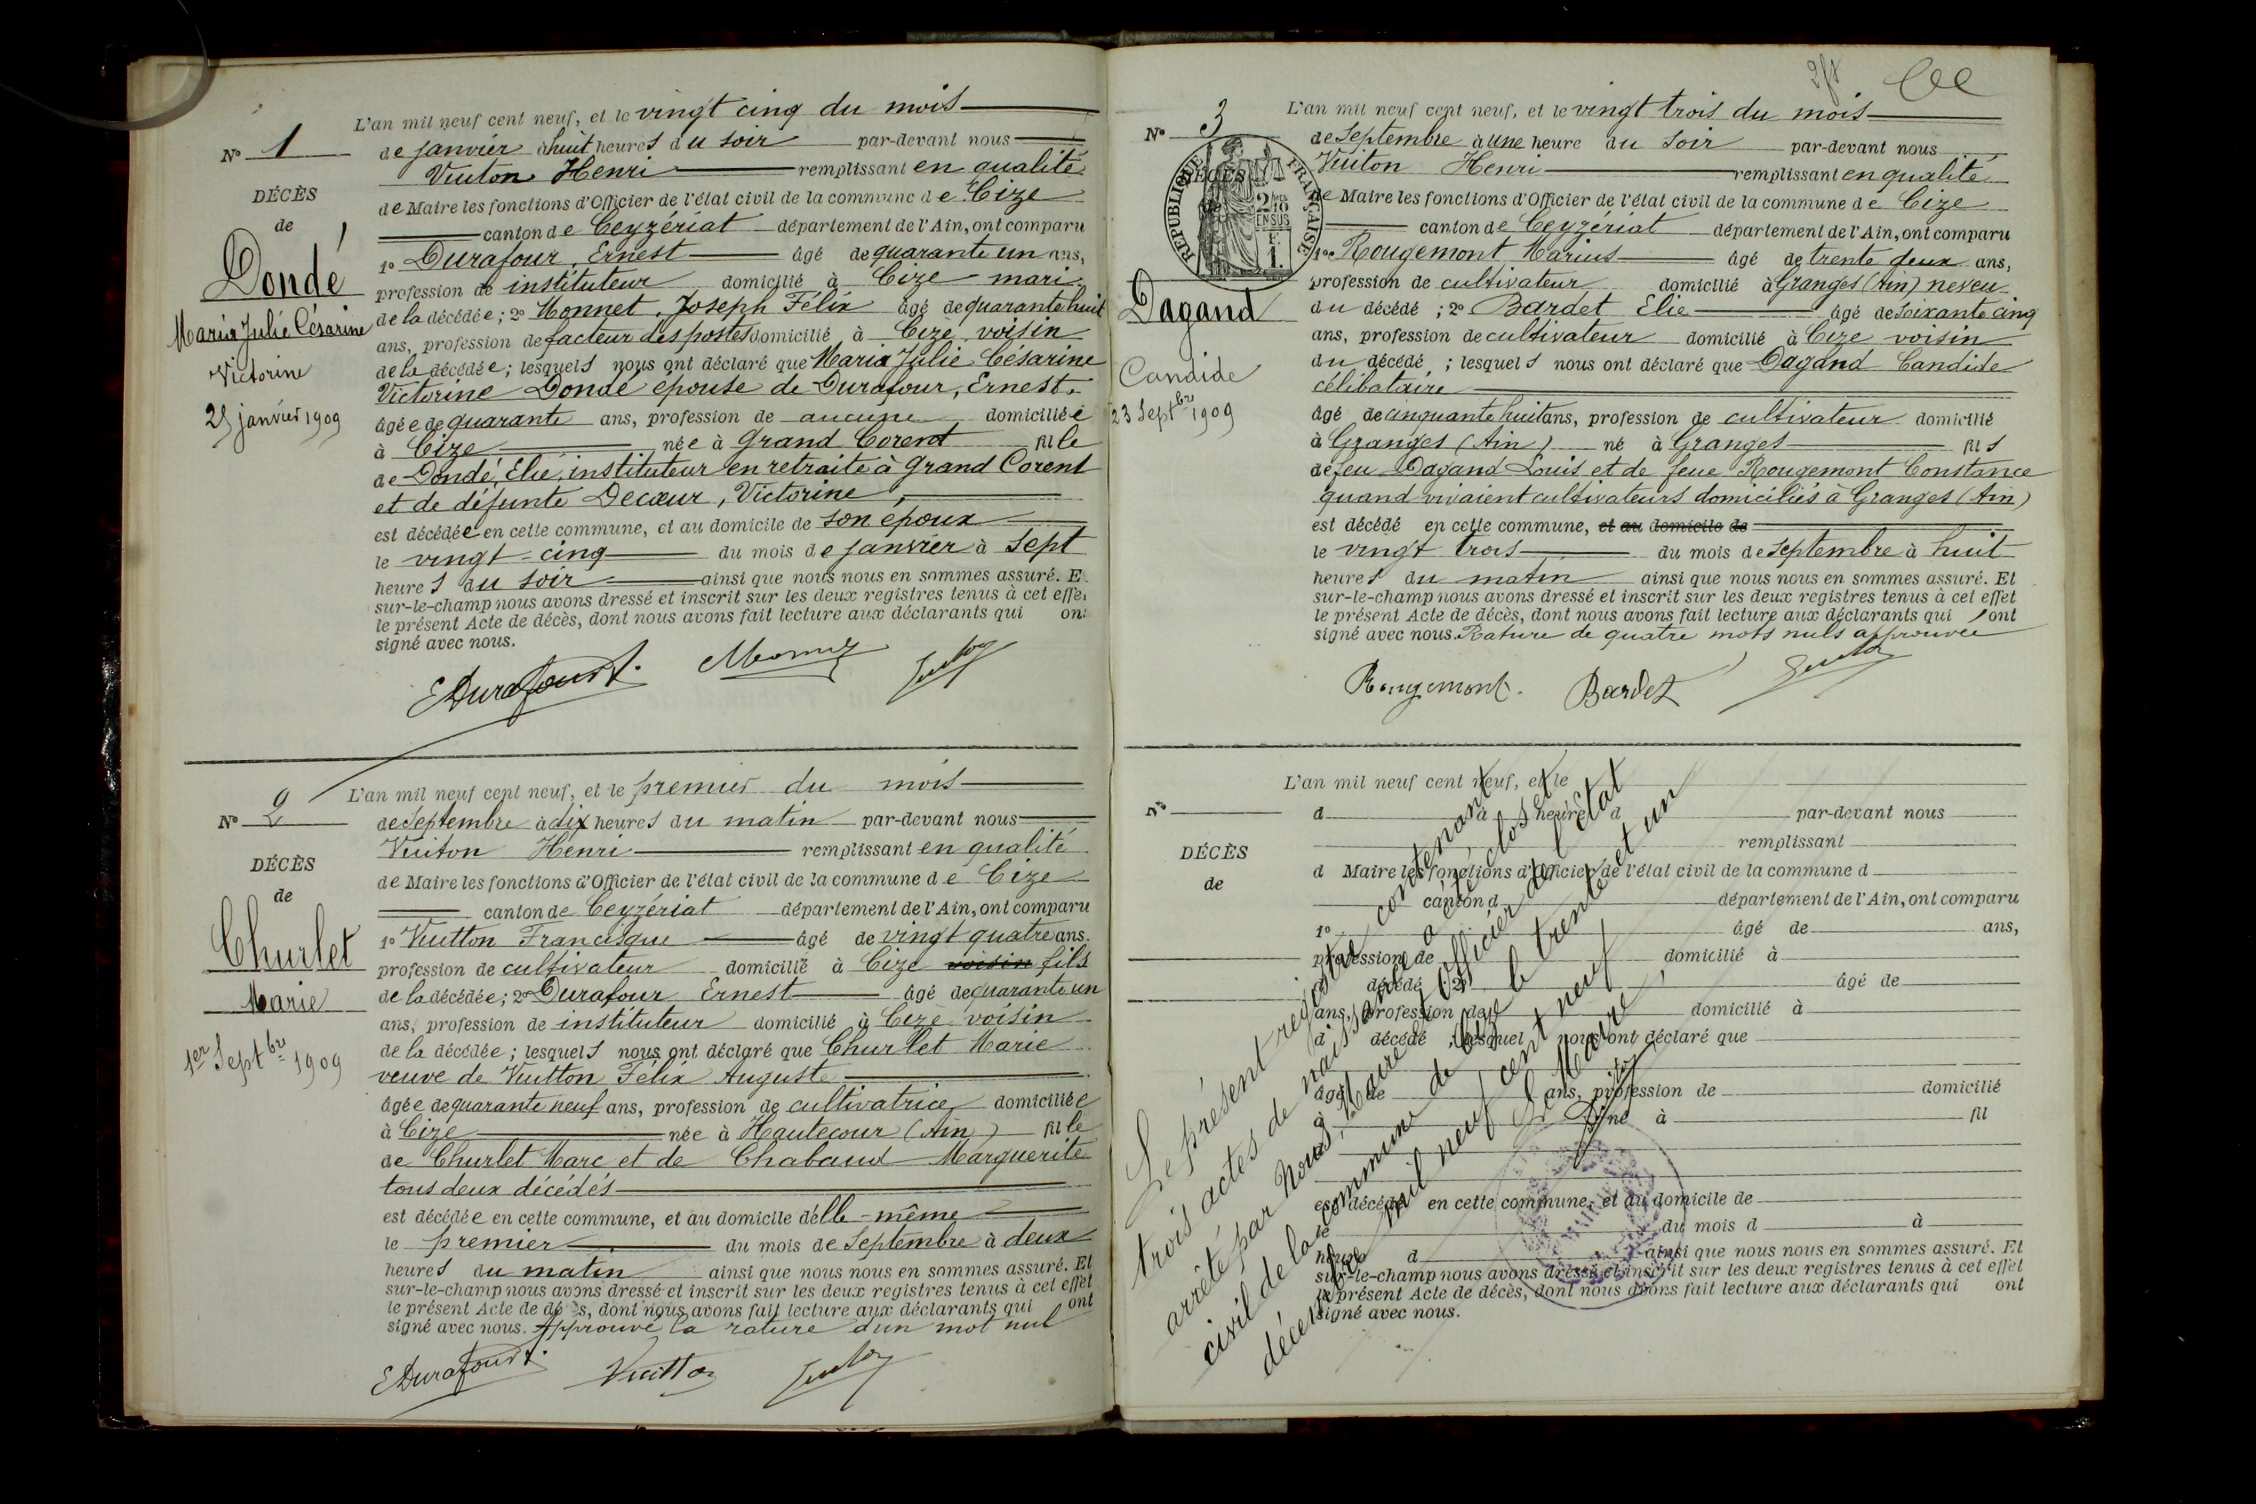 L'an mil neuf cent neuf, et le vingt cinq du mois
Nº 1
de janvier à huit heures du soir par-devant nous
Vuiton Henri remplissant en qualité
DÉCÈS
de Maire les fonctions d'Officier de l'état civil de la commune de Cize
de
canton de Ceyzériat département de l'Ain, ont comparu
Dondé
1º Durafour, Ernest âgé de quarante un ans,
profession de instituteur domicilié à Cize mari
Maria Julie Césarine
de la décédée; 2º Monnet, Joseph Félix âgé de quarante huit
ans, profession de facteur des postes domicilié à Cize voisin
Victorine
de la décédée; lesquels nous ont déclaré que Maria Julie Césarine
Victorine Dondé épouse de Durafour, Ernest.
25 janvier 1909
âgée de quarante ans, profession de aucune domiciliée
à Cize née à Grand Corent fille
de Dondé, Elie, instituteur en retraite à Grand Corent
et de défunte Decœur, Victorine,
est décédée en cette commune, et au domicile de son époux
le vingt-cinq du mois de janvier à sept
heures du soir ainsi que nous nous en sommes assuré. E
sur-le-champ nous avons dressé et inscrit sur les deux registres tenus à cet effe
le présent Acte de décès, dont nous avons fait lecture aux déclarants qui on
signé avec nous.
EDurafour
L'an mil neuf cent neuf, et le premier du mois
Nº 2
de Septembre à dix heures du matin par-devant nous
Vuiton Henri remplissant en qualité
DÉCÈS
de Maire les fonctions d'Officier de l'état civil de la commune de Cize
de
canton de Ceyzériat département de l'Ain, ont comparu
Churlet
1º Vuitton Francisque âgé de vingt quatre ans.
profession de cultivateur domicilié à Cize voisin fils
Marie
de la décédée; 2º Durafour Ernest âgé de quarante un
ans, profession de instituteur domicilié à Cize voisin
1er Septbre 1909
de la décédée; lesquels nous ont déclaré que Churlet Marie
veuve de Vuitton Félix Auguste
âgée de quarante neuf ans, profession de cultivatrice domiciliée
à Cize née à Hautecour (Ain) fille
de Churlet Marc et de Chabaud Marguerite
tous deux décédés
est décédée en cette commune, et au domicile d'elle-même
le premier du mois de Septembre à deux
heures du matin ainsi que nous nous en sommes assuré. Et
sur-le-champ nous avons dressé et inscrit sur les deux registres tenus à cet effet
le présent Acte de décès, dont nous avons fait lecture aux déclarants qui ont
signé avec nous. Approuvé la rature d'un mot nul
EDurafour Vuitton
L'an mil neuf cent neuf, et le vingt trois du mois
Nº 3
de Septembre à une heure du soir par-devant nous
Vuiton Henri remplissant en qualité
DÉCÈS
RÉPUBLIQUE FRANÇAISE
de Maire les fonctions d'Officier de l'état civil de la commune de Cize
canton de Ceyzériat département de l'Ain, ont comparu
1º Rougemont Marius âgé de trente deux ans,
profession de cultivateur domicilié à Granges (Ain) neveu
Dagand
du décédé; 2º Bardet Elie âgé de soixante cinq
ans, profession de cultivateur domicilié à Cize voisin
Candide
du décédé; lesquels nous ont déclaré que Dagand Candide
célibataire
23 Septbre 1909
âgé de cinquante huit ans, profession de cultivateur domicilié
à Granges (Ain) né à Granges fils
de feu Dagand Louis et de feue Rougemont Constance
quand vivaient cultivateurs domiciliés à Granges (Ain)
est décédé en cette commune, et au domicile de
le vingt trois du mois de septembre à huit
heures du matin ainsi que nous nous en sommes assuré. Et
sur-le-champ nous avons dressé et inscrit sur les deux registres tenus à cet effet
le présent Acte de décès, dont nous avons fait lecture aux déclarants qui ont
signé avec nous. Rature de quatre mots nuls approuvée
Rougemont. Bardet
L'an mil neuf cent neuf, et le
Nº
d à heure d par-devant nous
remplissant
DÉCÈS
d Maire les fonctions d'Officier de l'état civil de la commune d
de
canton d département de l'Ain, ont comparu
1º âgé de ans,
profession de domicilié à
d décédé ; 2º âgé de
ans, profession de domicilié à
d décédé ; lesquel nous ont déclaré que
âgé de ans, profession de domicilié
à né à fil
est décédé en cette commune, et au domicile de
le du mois d à
heure d ainsi que nous nous en sommes assuré. Et
sur-le-champ nous avons dressé et inscrit sur les deux registres tenus à cet effet
le présent Acte de décès, dont nous avons fait lecture aux déclarants qui ont
signé avec nous.
Le présent registre contenant
trois actes de naissance a été clos et
arrêté par Nous, Maire et Officier de l'état
civil de la commune de Cize le trente et un
décembre mil neuf cent neuf
Le Maire,